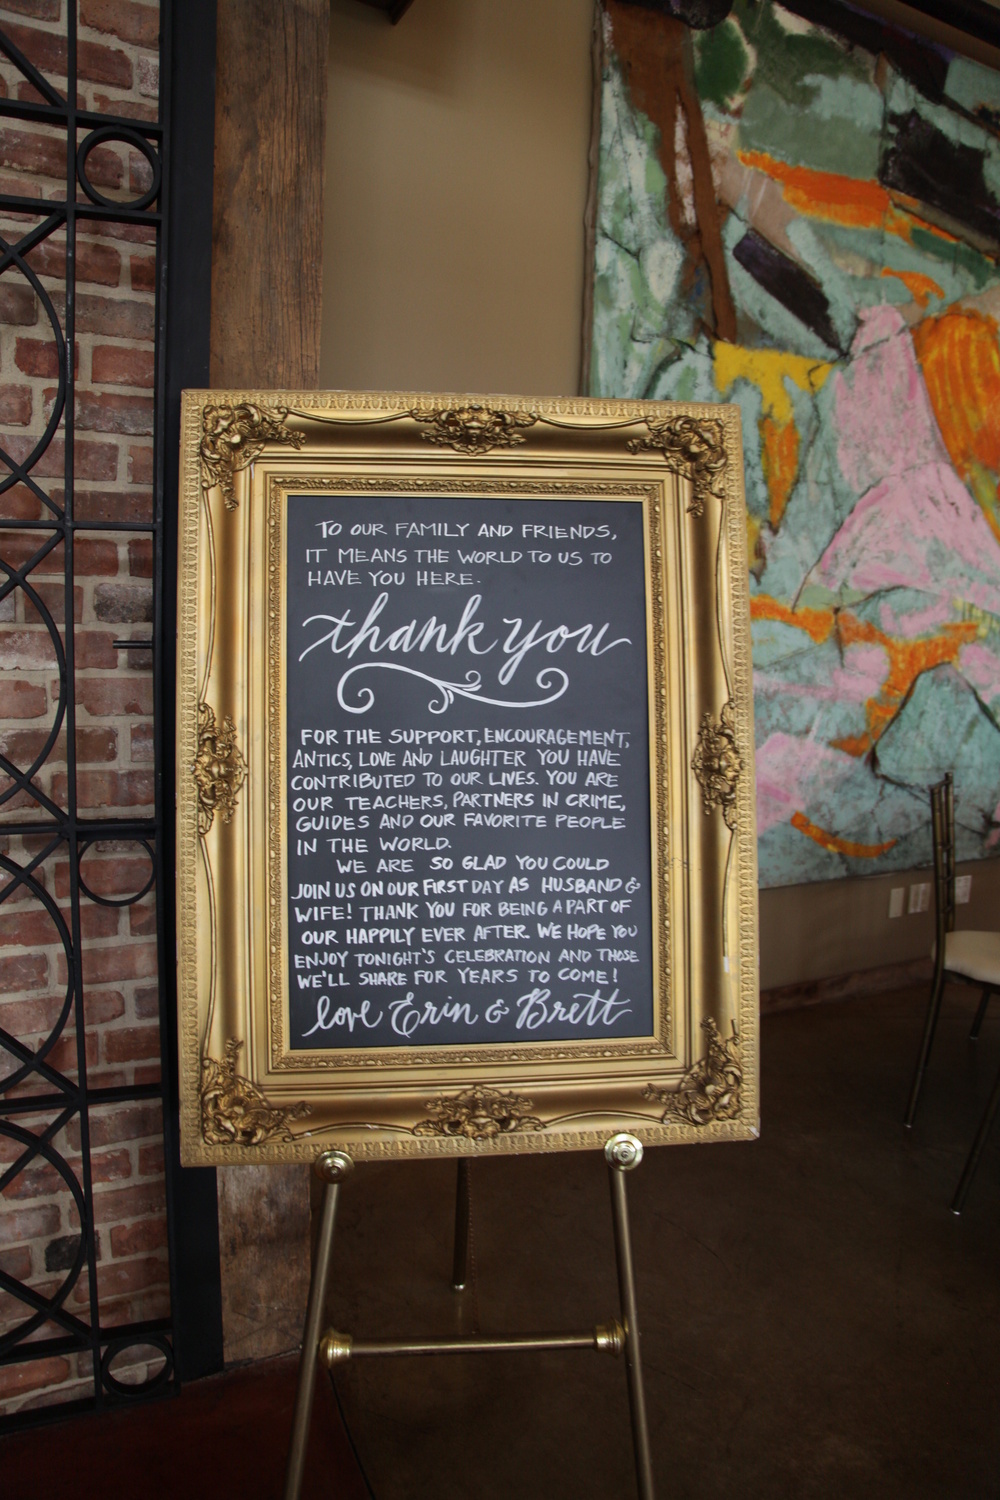 TO OUR FAMILY AND FRIENDS,
IT MEANS THE WORLD TO US TO
HAVE YOU HERE.
thank you
FOR THE SUPPORT, ENCOURAGEMENT,
ANTICS, LOVE AND LAUGHTER YOU HAVE
CONTRIBUTED TO OUR LIVES. YOU ARE
OUR TEACHERS, PARTNERS IN CRIME,
GUIDES AND OUR FAVORITE PEOPLE
IN THE WORLD.
WE ARE SO GLAD YOU COULD
JOIN US ON OUR FIRST DAY AS HUSBAND &
WIFE! THANK YOU FOR BEING A PART OF
OUR HAPPILY EVER AFTER. WE HOPE YOU
ENJOY TONIGHT'S CELEBRATION AND THOSE
WE'LL SHARE FOR YEARS TO COME!
love Erin & Brett